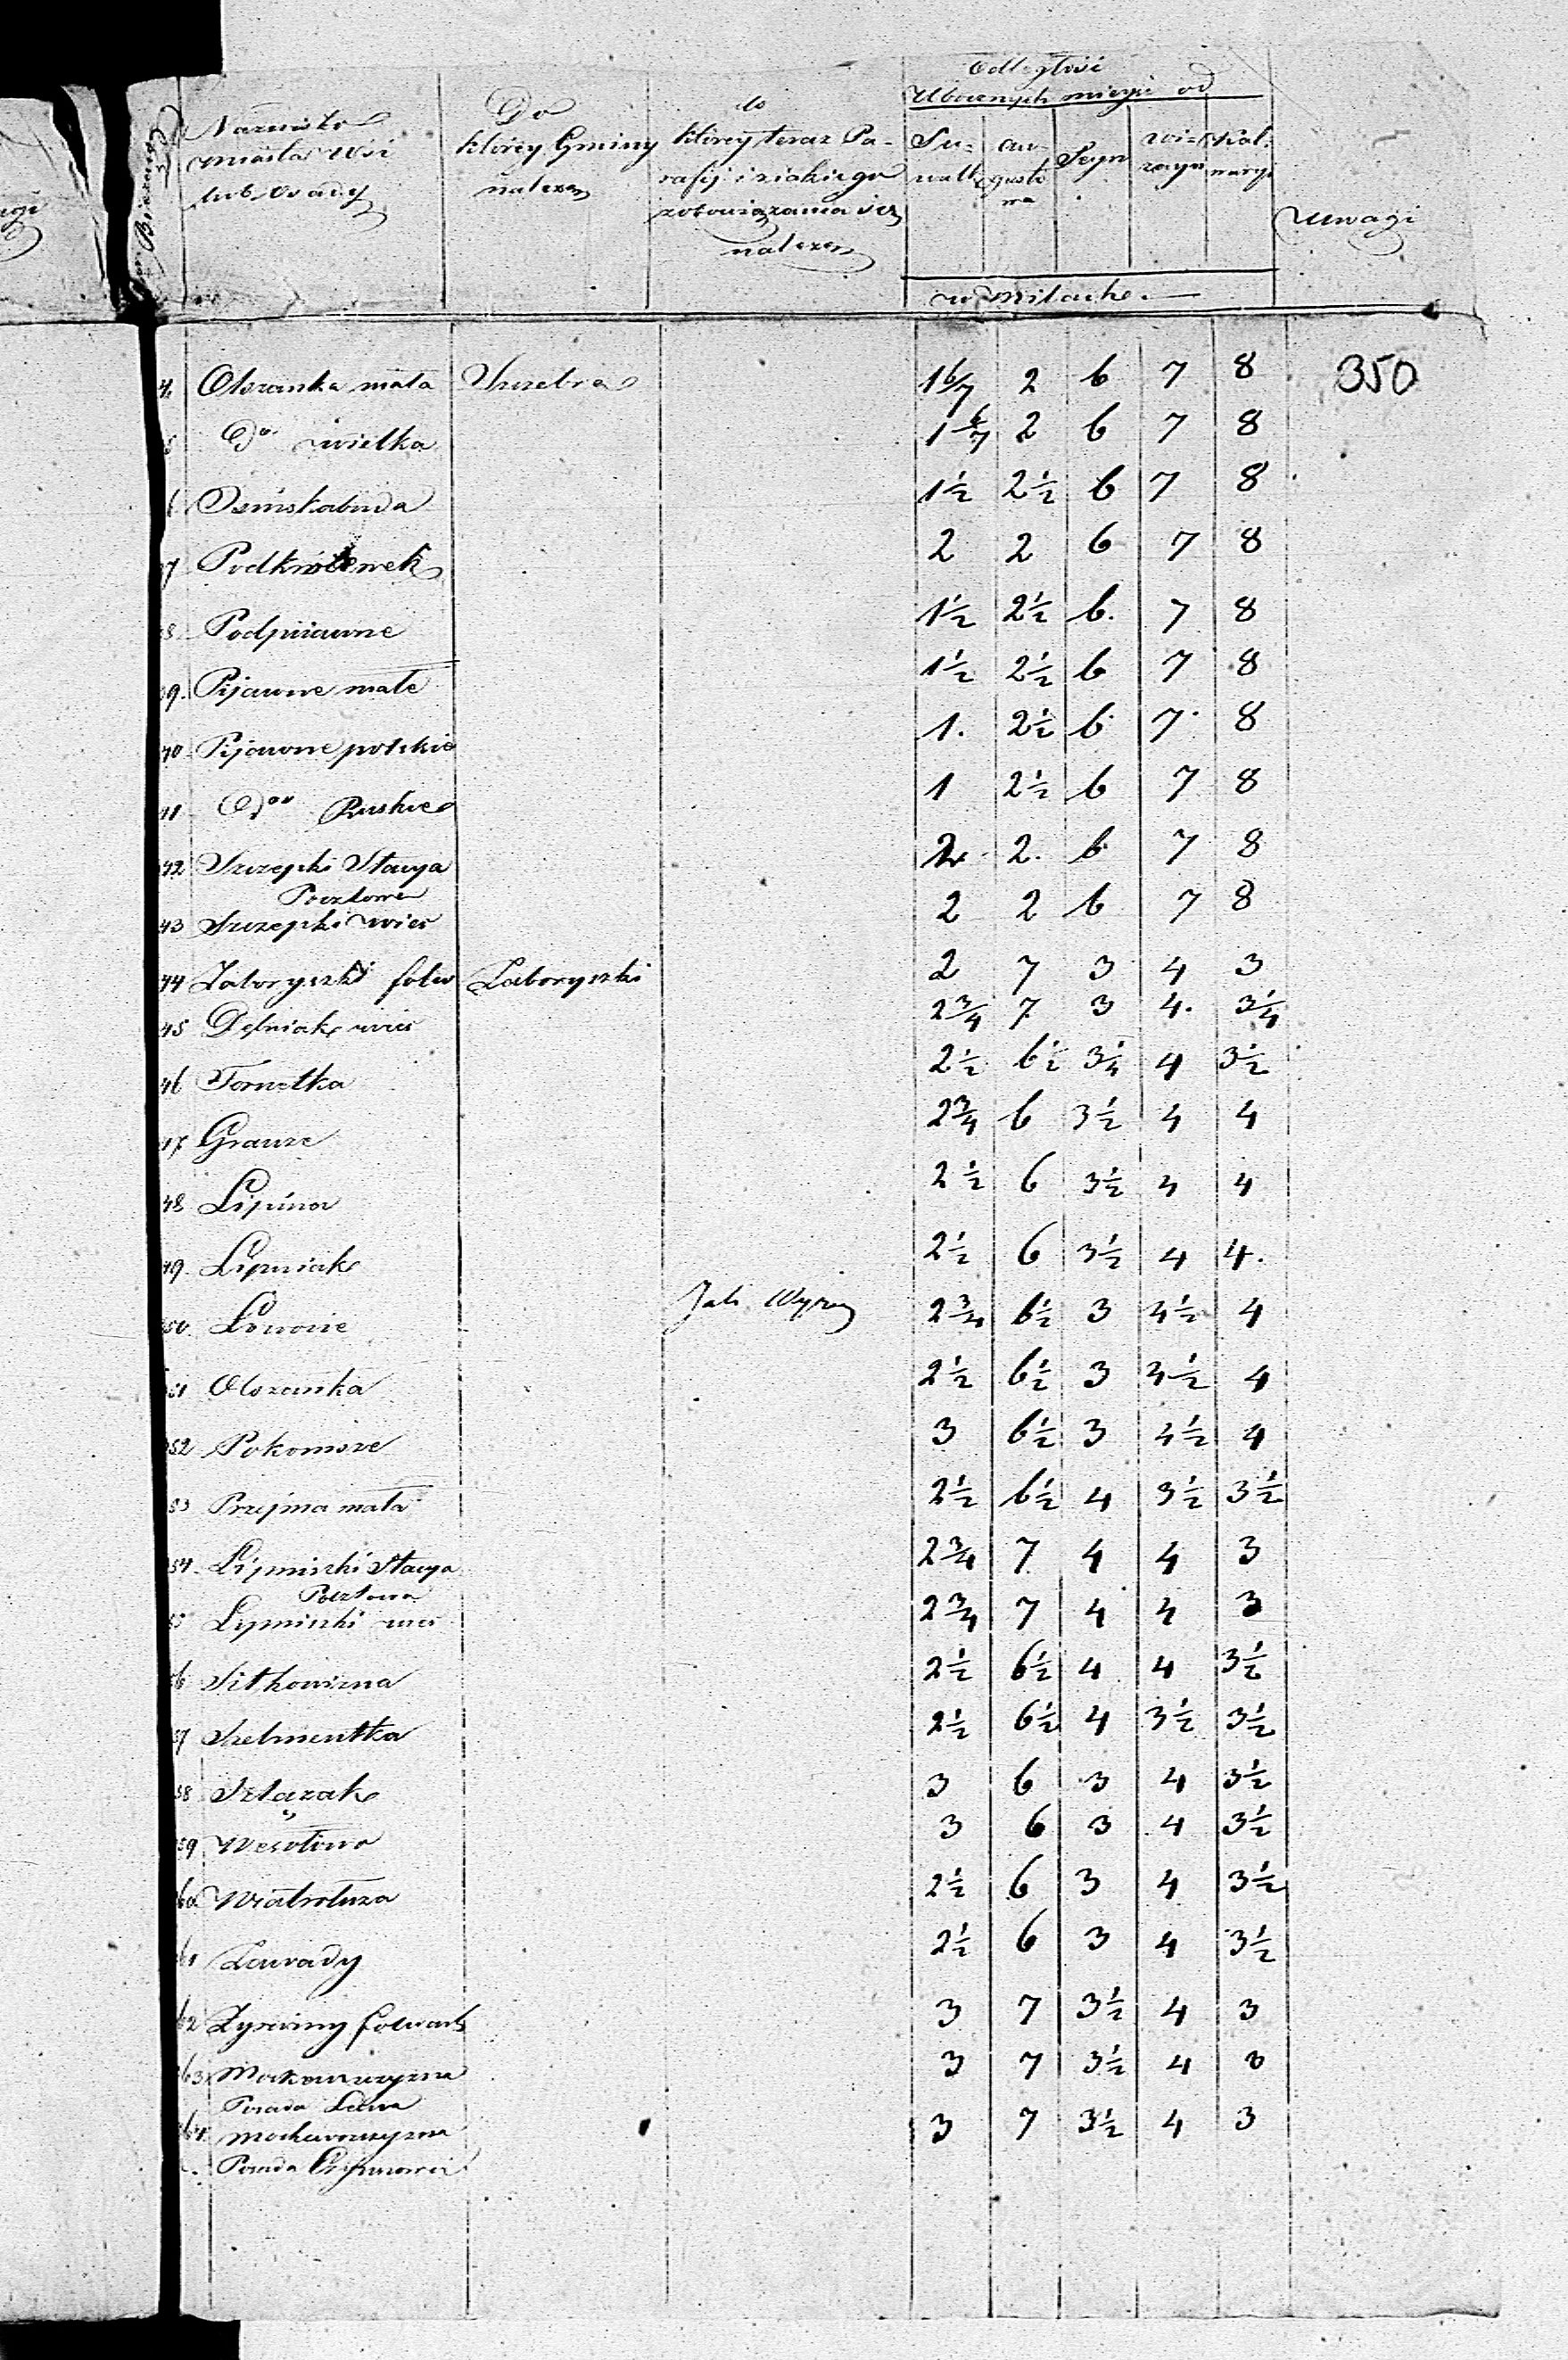 Nazwisko miasta wsi lub osady
Do którey Gminy należy
do którey teraz Parafij i z iakiego zobowiązania się należy
Odległość Ubocznych mieysc od
Suwałk
Augustowa
Seyn
Kalwaryi
Uwagi
w Milach
Olszanka mała Szczebra 1 6/7 2 6 7 8 350
Do wielka 1 6/7 2 6 7 8
Osinskabuda 1½ 2½ 6 7 8
37 2 2 6 7 8
38 Podpijawne 1½ 2½ 6. 7 8
39. Pijawne małe 1½ 2½ 6 7 8
40 Pijawne polskie 1. 2½ 6 7 8
41 Do Ruskie 1 2½ 6 7 8
42 Szczepki Stacya Pocztowa 2 2. 6 7 8
43 Szczepki wieś 2 2 6 7 8
44 Zaboryszki folw Zaboryszki 2 7 3 4 3
45 Dębniak wieś 2¾ 7 3 4. 3¼
46 2½ 6½ 3¼ 4 3½
47 Grauze 2¾ 6 3½ 4 4
48 Lipina 2½ 6 3½ 4 4
49. Lipniak 2½ 6 3½ 4 4.
50. Łowocie Jak Wyżey 2¾ 6½ 3 4½ 4
51 Olszanka 2½ 6½ 3 4½ 4
52 Pokomsze 3 6½ 3 4½ 4
53 Przejma mała 2½ 6½ 4 3½ 3½
54. Lipniszki Stacya Pocztowa 2¾ 7 4 4 3
55 Lipniszki wieś 2¾ 7 4 4 3
56 Sitkowizna 2½ 6½ 4 4 3½
57 Szelmentka 2½ 6½ 4 3½ 3½
58 3 6 3 4 3½
59 Wesołowo 3 6 3 4 3½
60. Wiatrołuza 2½ 6 3 4 3½
61 2½ 6 3 4 3½
62 Żyrwiny folwark 3 7 3½ 4 3
63 Mackowszyzna 3 7 3½ 4 3
64. Mackowszyzna 3 7 3½ 4 3